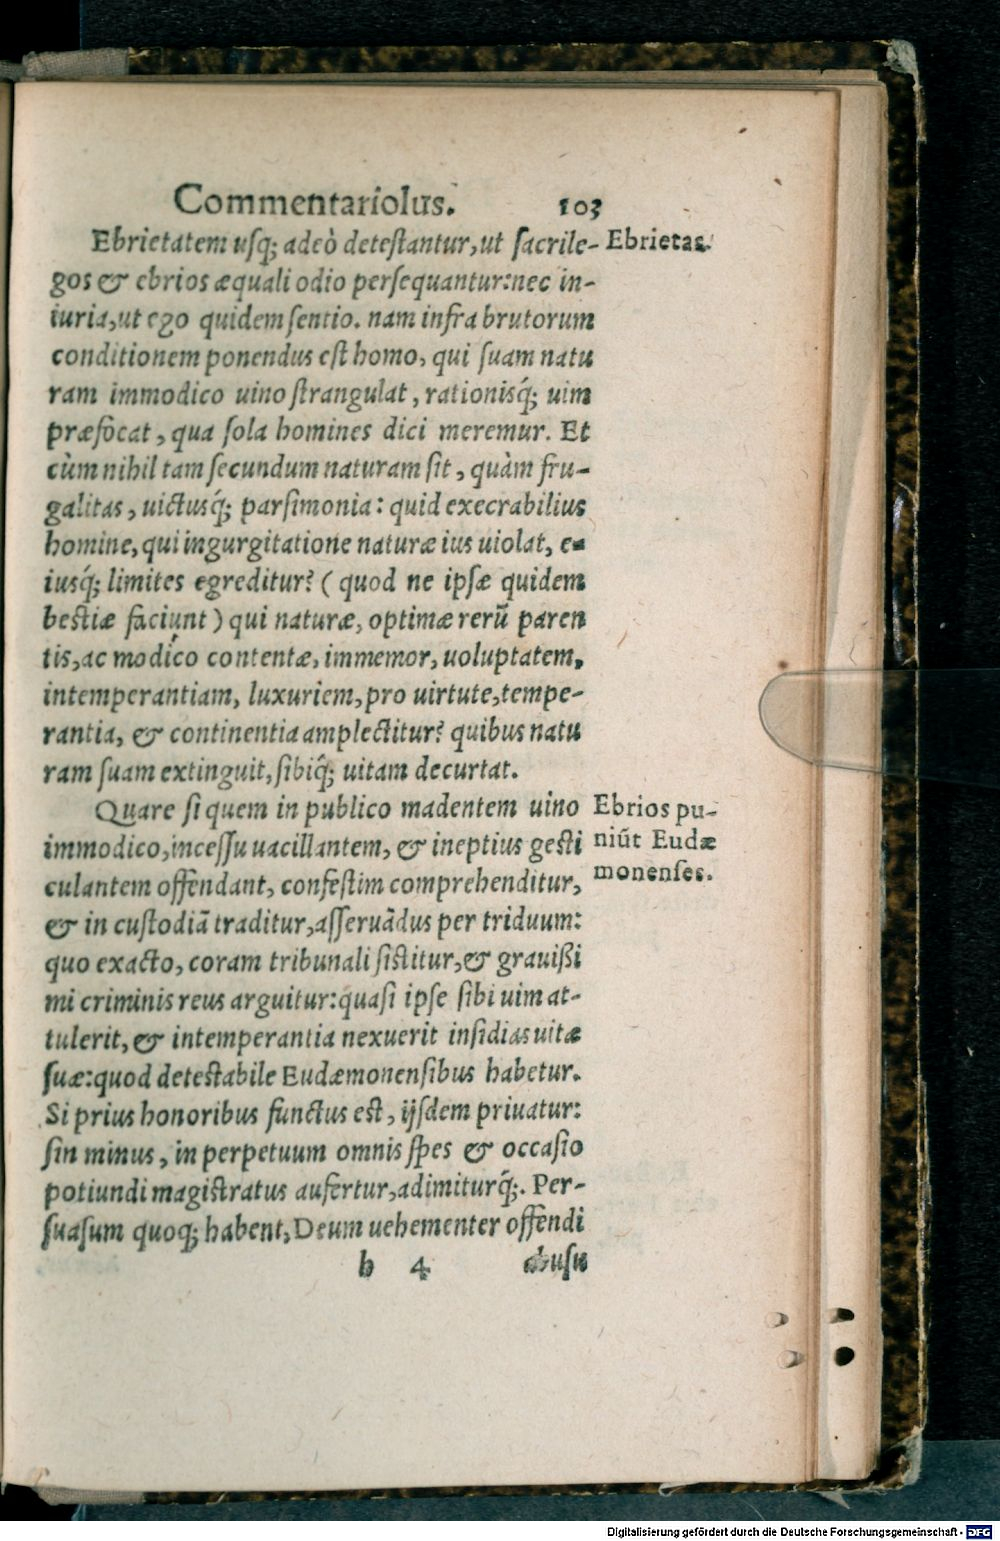 Commentariolus. 103
Ebrietatem usq; adeò detestantur, ut sacrile- Ebrietas.
gos & ebrios æquali odio persequantur: nec in-
iuria, ut ego quidem sentio. nam infra brutorum
conditionem ponendus est homo, qui suam natu
ram immodico uino strangulat, rationisq́; uim
præfocat, qua sola homines dici meremur. Et
cùm nihil tam secundum naturam sit, quàm fru-
galitas, uictusq́; parsimonia: quid execrabilius
homine, qui ingurgitatione naturæ ius uiolat, e-
iusq́; limites egreditur? (quod ne ipsæ quidem
bestiæ faciunt) qui naturæ, optimæ rerũ paren
tis, ac modico contentæ, immemor, uoluptatem,
intemperantiam, luxuriem, pro uirtute, tempe-
rantia, & continentia amplectitur? quibus natu
ram suam extinguit, sibiq́; uitam decurtat.
Quare si quem in publico madentem uino
immodico, incessu uacillantem, & ineptius gesti
culantem offendant, confestim comprehenditur,
& in custodiã traditur, asseruãdus per triduum:
quo exacto, coram tribunali sistitur, & grauißi
mi criminis reus arguitur: quasi ipse sibi uim at-
tulerit, & intemperantia nexuerit insidias uitæ
suæ: quod detestabile Eudæmonensibus habetur.
Si prius honoribus functus est, ijsdem priuatur:
sin minus, in perpetuum omnis spes & occasio
potiundi magistratus aufertur, adimiturq́;. Per-
suasum quoq; habent, Deum uehementer offendi
h 4 abusu
Ebrios pu-
niũt Eudæ
monenses.
Digitalisierung gefördert durch die Deutsche Forschungsgemeinschaft - DFG